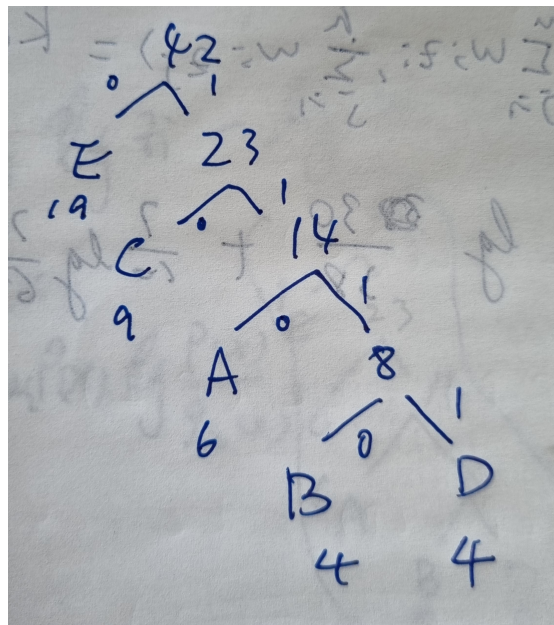 42
0 1
E 23
19 0 1
C 14
9 0 1
A 8
6 0 1
B D
4 4